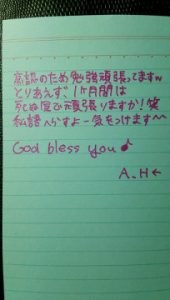 高認のため勉強頑張ってますw
とりあえず、1ヶ月間は
死ぬ気で頑張りますか!笑
私語へらすよー気をつけます〜
God bless you♪
A.H←